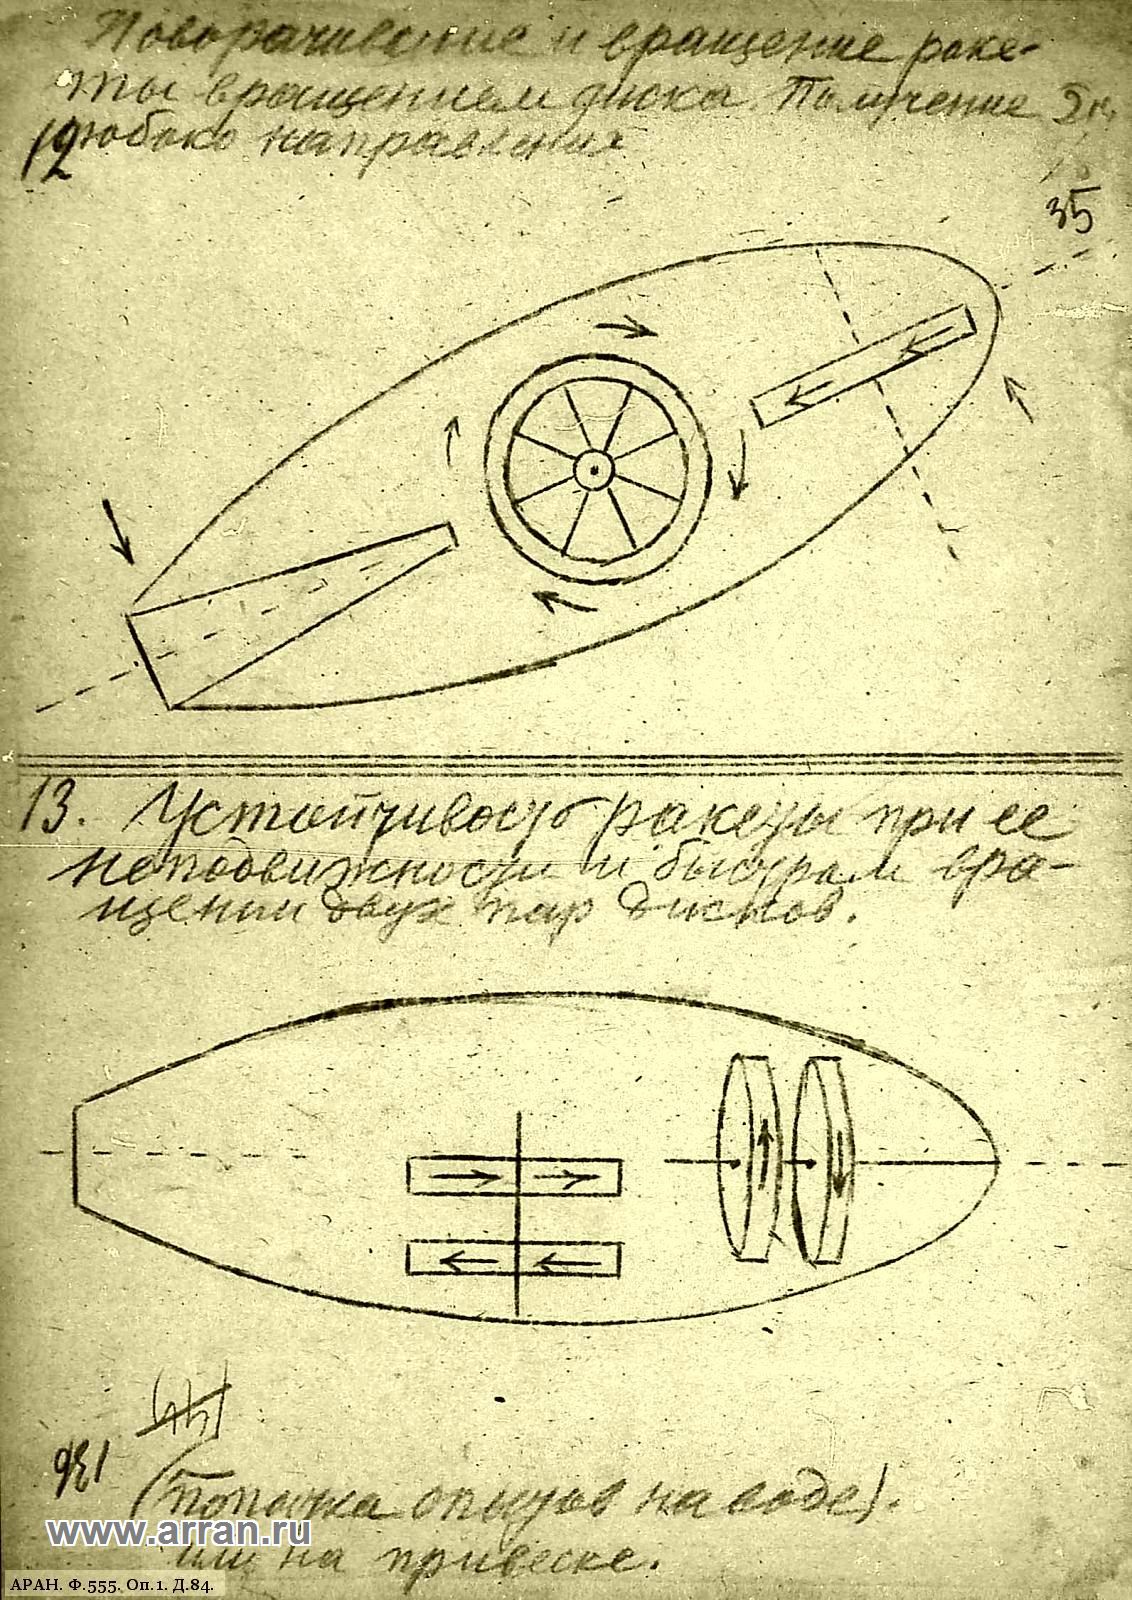 Поворачивание и вращение раке-
ты вращением диска. Получение
12 любого направления
35
13. Устойчивость ракеты при ее
неподвижности и быстром вра-
щении двух пар дисков.
136
опытов на воде).
или на привеске.
www.arran.ru
АРАН. Ф.555. Оп.1. Д.84.